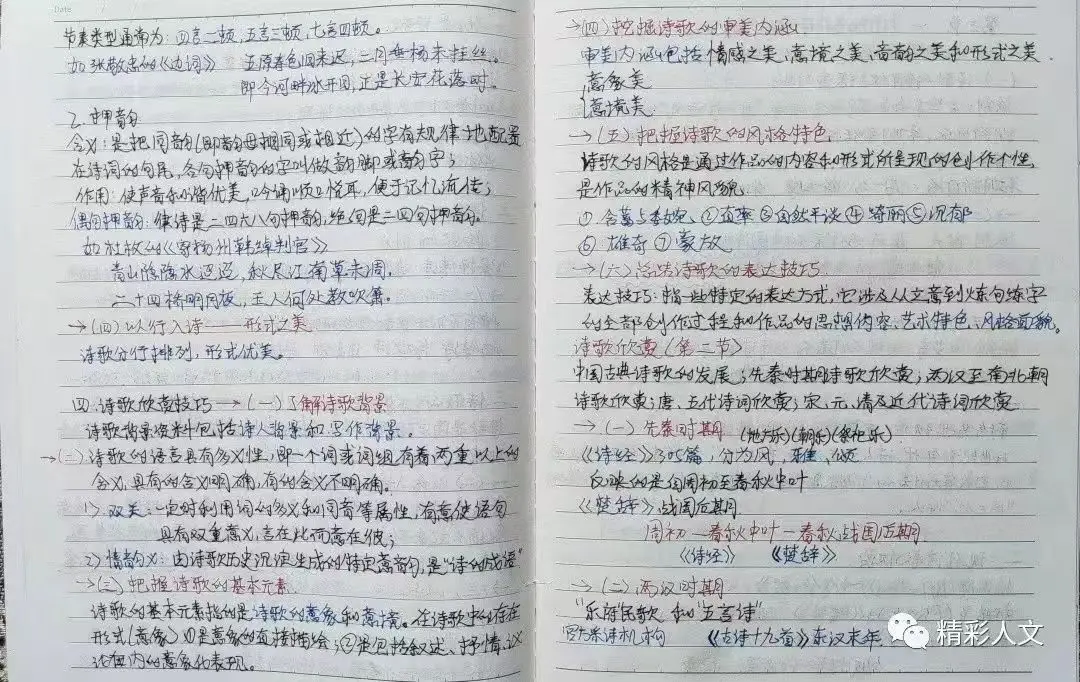 Date
节奏类型通常为：四言二顿，五言三顿，七言四顿。
如张敬忠的《边词》 五原春色旧来迟，二月垂杨未挂丝。
即今河畔冰开日，正是长安花落时。
2.押韵
含义：是把同韵(即韵母相同或相近)的字有规律地配置
在诗词的句尾，各句押韵的字叫做韵脚或韵字；
作用：使声音和谐优美，吟诵顺口悦耳，便于记忆流传；
偶句押韵：律诗是二四六八句押韵，绝句是二四句押韵。
如杜牧的《寄扬州韩绰判官》
青山隐隐水迢迢，秋尽江南草未凋。
二十四桥明月夜，玉人何处教吹箫。
→(四)以行入诗——形式之美
诗歌分行排列，形式优美。
四.诗歌欣赏技巧→(一)了解诗歌背景
诗歌背景资料包括诗人背景和写作背景。
→(二)诗歌的语言具有多义性，即一个词或词组有着两重以上的
含义，具有的含义明确，有的含义不明确。
1）双关：一定时利用词的多义和同音等属性，有意使语句
具有双重意义，言在此而意在彼；
2）情韵义：由诗歌历史沉淀生成的特定意韵，是“诗的成语”
→(三)把握诗歌的基本元素
诗歌的基本元素指的是诗歌的意象和意境。在诗歌中的存在
形式(意象)①是意象的直接描绘；②是包括叙述、抒情、议
论在内的意象化表现。
→(四)挖掘诗歌的审美内涵
审美内涵包括情感之美、意境之美、音韵之美和形式之美.
意象美
意境美
→(五)把握诗歌的风格特色
诗歌的风格是通过作品的内容和形式所呈现的创作个性，
是作品的精神风貌.
①含蓄与委婉，②直率③自然平淡④绮丽⑤沉郁
⑥雄奇⑦豪放
→(六)总结诗歌的表达技巧
表达技巧：指一些特定的表达方式，它涉及从立意到炼句练字
的全部创作过程和作品的思想内容、艺术特色、风格面貌。
诗歌欣赏(第二节)
中国古典诗歌的发展；先秦时期诗歌欣赏；两汉至南北朝
诗歌欣赏；唐、五代诗词欣赏；宋、元、清及近代诗词欣赏
→(一)先秦时期 (地方乐)(朝乐)(祭祀乐).
《诗经》305篇，分为风、雅、颂
反映的是自周初至春秋中叶
《楚辞》战国后期
周初—春秋中叶—春秋战国后期
《诗经》 《楚辞》
→(二)两汉时期
“乐府民歌”和“五言诗”
官方采诗机构 《古诗十九首》东汉末年
精彩人文